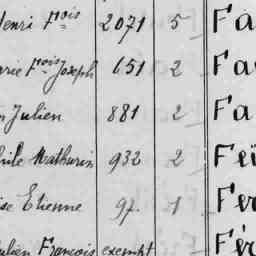 Henri Fçois 2071 5 Fa
arie Fçois Joseph 651 2 Fa
n Julien 881 2 Fa
hile Mathurin 932 2 Feï
ise Etienne 97 1 Fer
ulien François exempt Fér